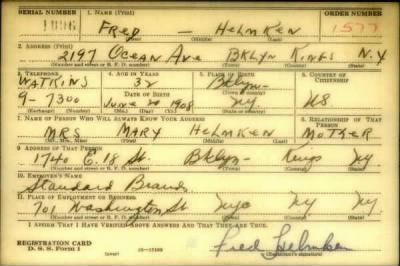 SERIAL NUMBER 1. NAME (Print) ORDER NUMBER
1896 FRED — HELMKEN 1577
(First) (Middle) (Last)
2. ADDRESS (Print)
2197 OCEAN AVE BKLYN KINGS N.Y
(Number and street or R. F. D. number) (Town) (County) (State)
3. TELEPHONE 4. AGE IN YEARS 5. PLACE OF BIRTH 6. COUNTRY OF CITIZENSHIP
WATKINS 32 Bklyn-
DATE OF BIRTH (Town or county)
9-7300 June 20 1908 NY. US
(Exchange) (Number) (Mo.) (Day) (Yr.) (State or country)
7. NAME OF PERSON WHO WILL ALWAYS KNOW YOUR ADDRESS 8. RELATIONSHIP OF THAT PERSON
MRS MARY HELMKEN MOTHER
(Mr., Mrs., Miss) (First) (Middle) (Last)
9. ADDRESS OF THAT PERSON
1740 E. 18 St. Bklyn- Kings NY
(Number and street or R. F. D. number) (Town) (County) (State)
10. EMPLOYER'S NAME
Standard Brands
11. PLACE OF EMPLOYMENT OR BUSINESS
701 Washington St NYC NY NY
(Number and street or R. F. D. number) (Town) (County) (State)
I AFFIRM THAT I HAVE VERIFIED ABOVE ANSWERS AND THAT THEY ARE TRUE.
REGISTRATION CARD
D. S. S. Form 1 (over) Fred Helmken
(Registrant's signature)